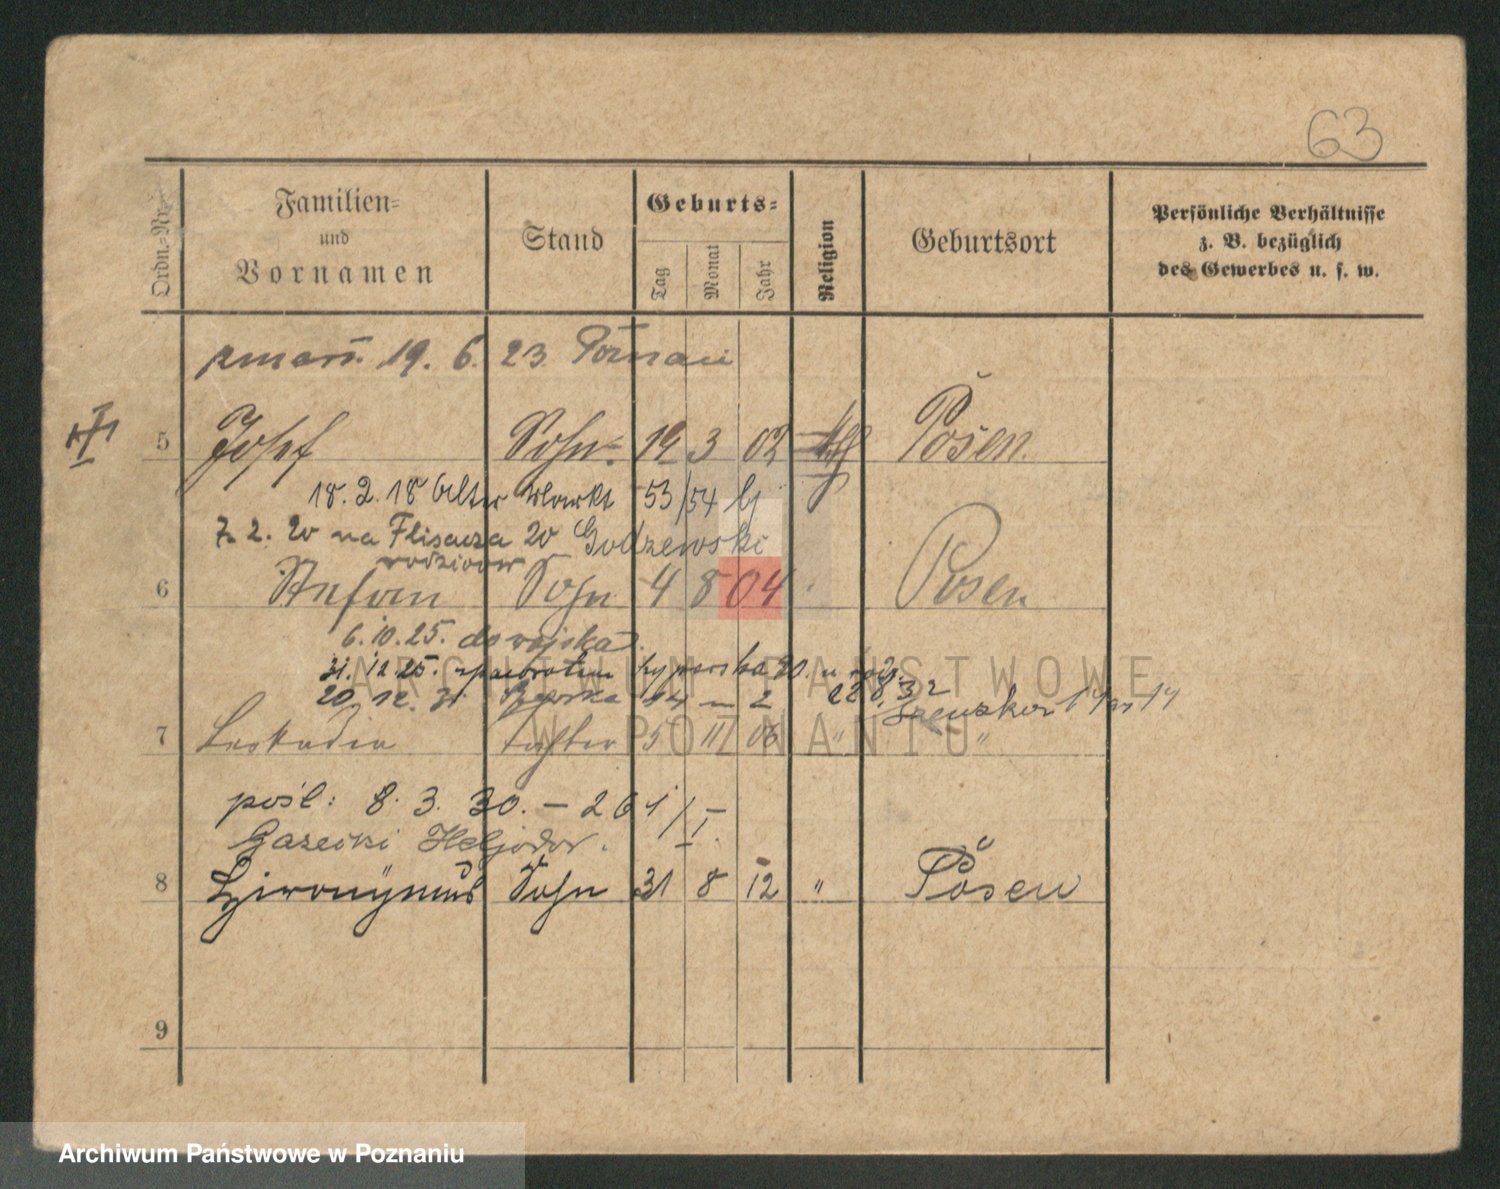 63
Ordn.=Nr.
Familien=
und
Vornamen
Stand
Geburts=
Tag
Monat
Jahr
Religion
Geburtsort
Persönliche Verhältnisse
z. B. bezüglich
des Gewerbes u. s. w.
zmarł. 19. 6. 23. Poznań
5 Josef Sohn 19 3 02 Posen
18. 2. 18 Alter Markt 53/54
7. 2. 20 na Flisacza 20 Godzewski
rodziców
6 Stefan Sohn 4 8 04 Posen
6.10.25. do wojska
31. 12 25.
20. 12. 31 14 m 2 22.8.32
7 Leokadia Tochter 5 11 06 " "
pośl: 8. 3. 30. – 261/I.
Gazecki Heljodor.
8 Hieronÿmus Sohn 31 8 12 " Posen
9
ARCHIWUM PAŃSTWOWE
W POZNANIU
Archiwum Państwowe w Poznaniu